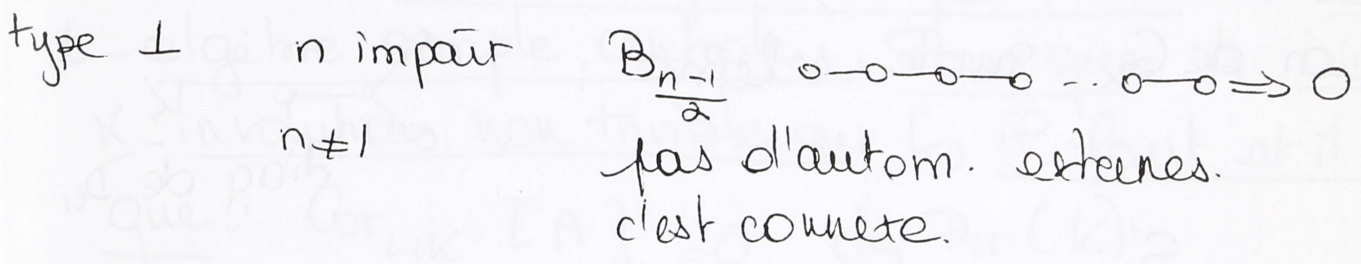 type 1 n impair B_{\frac{n-1}{2}}
n ≠ 1 pas d'autom. externes.
c'est connexe.